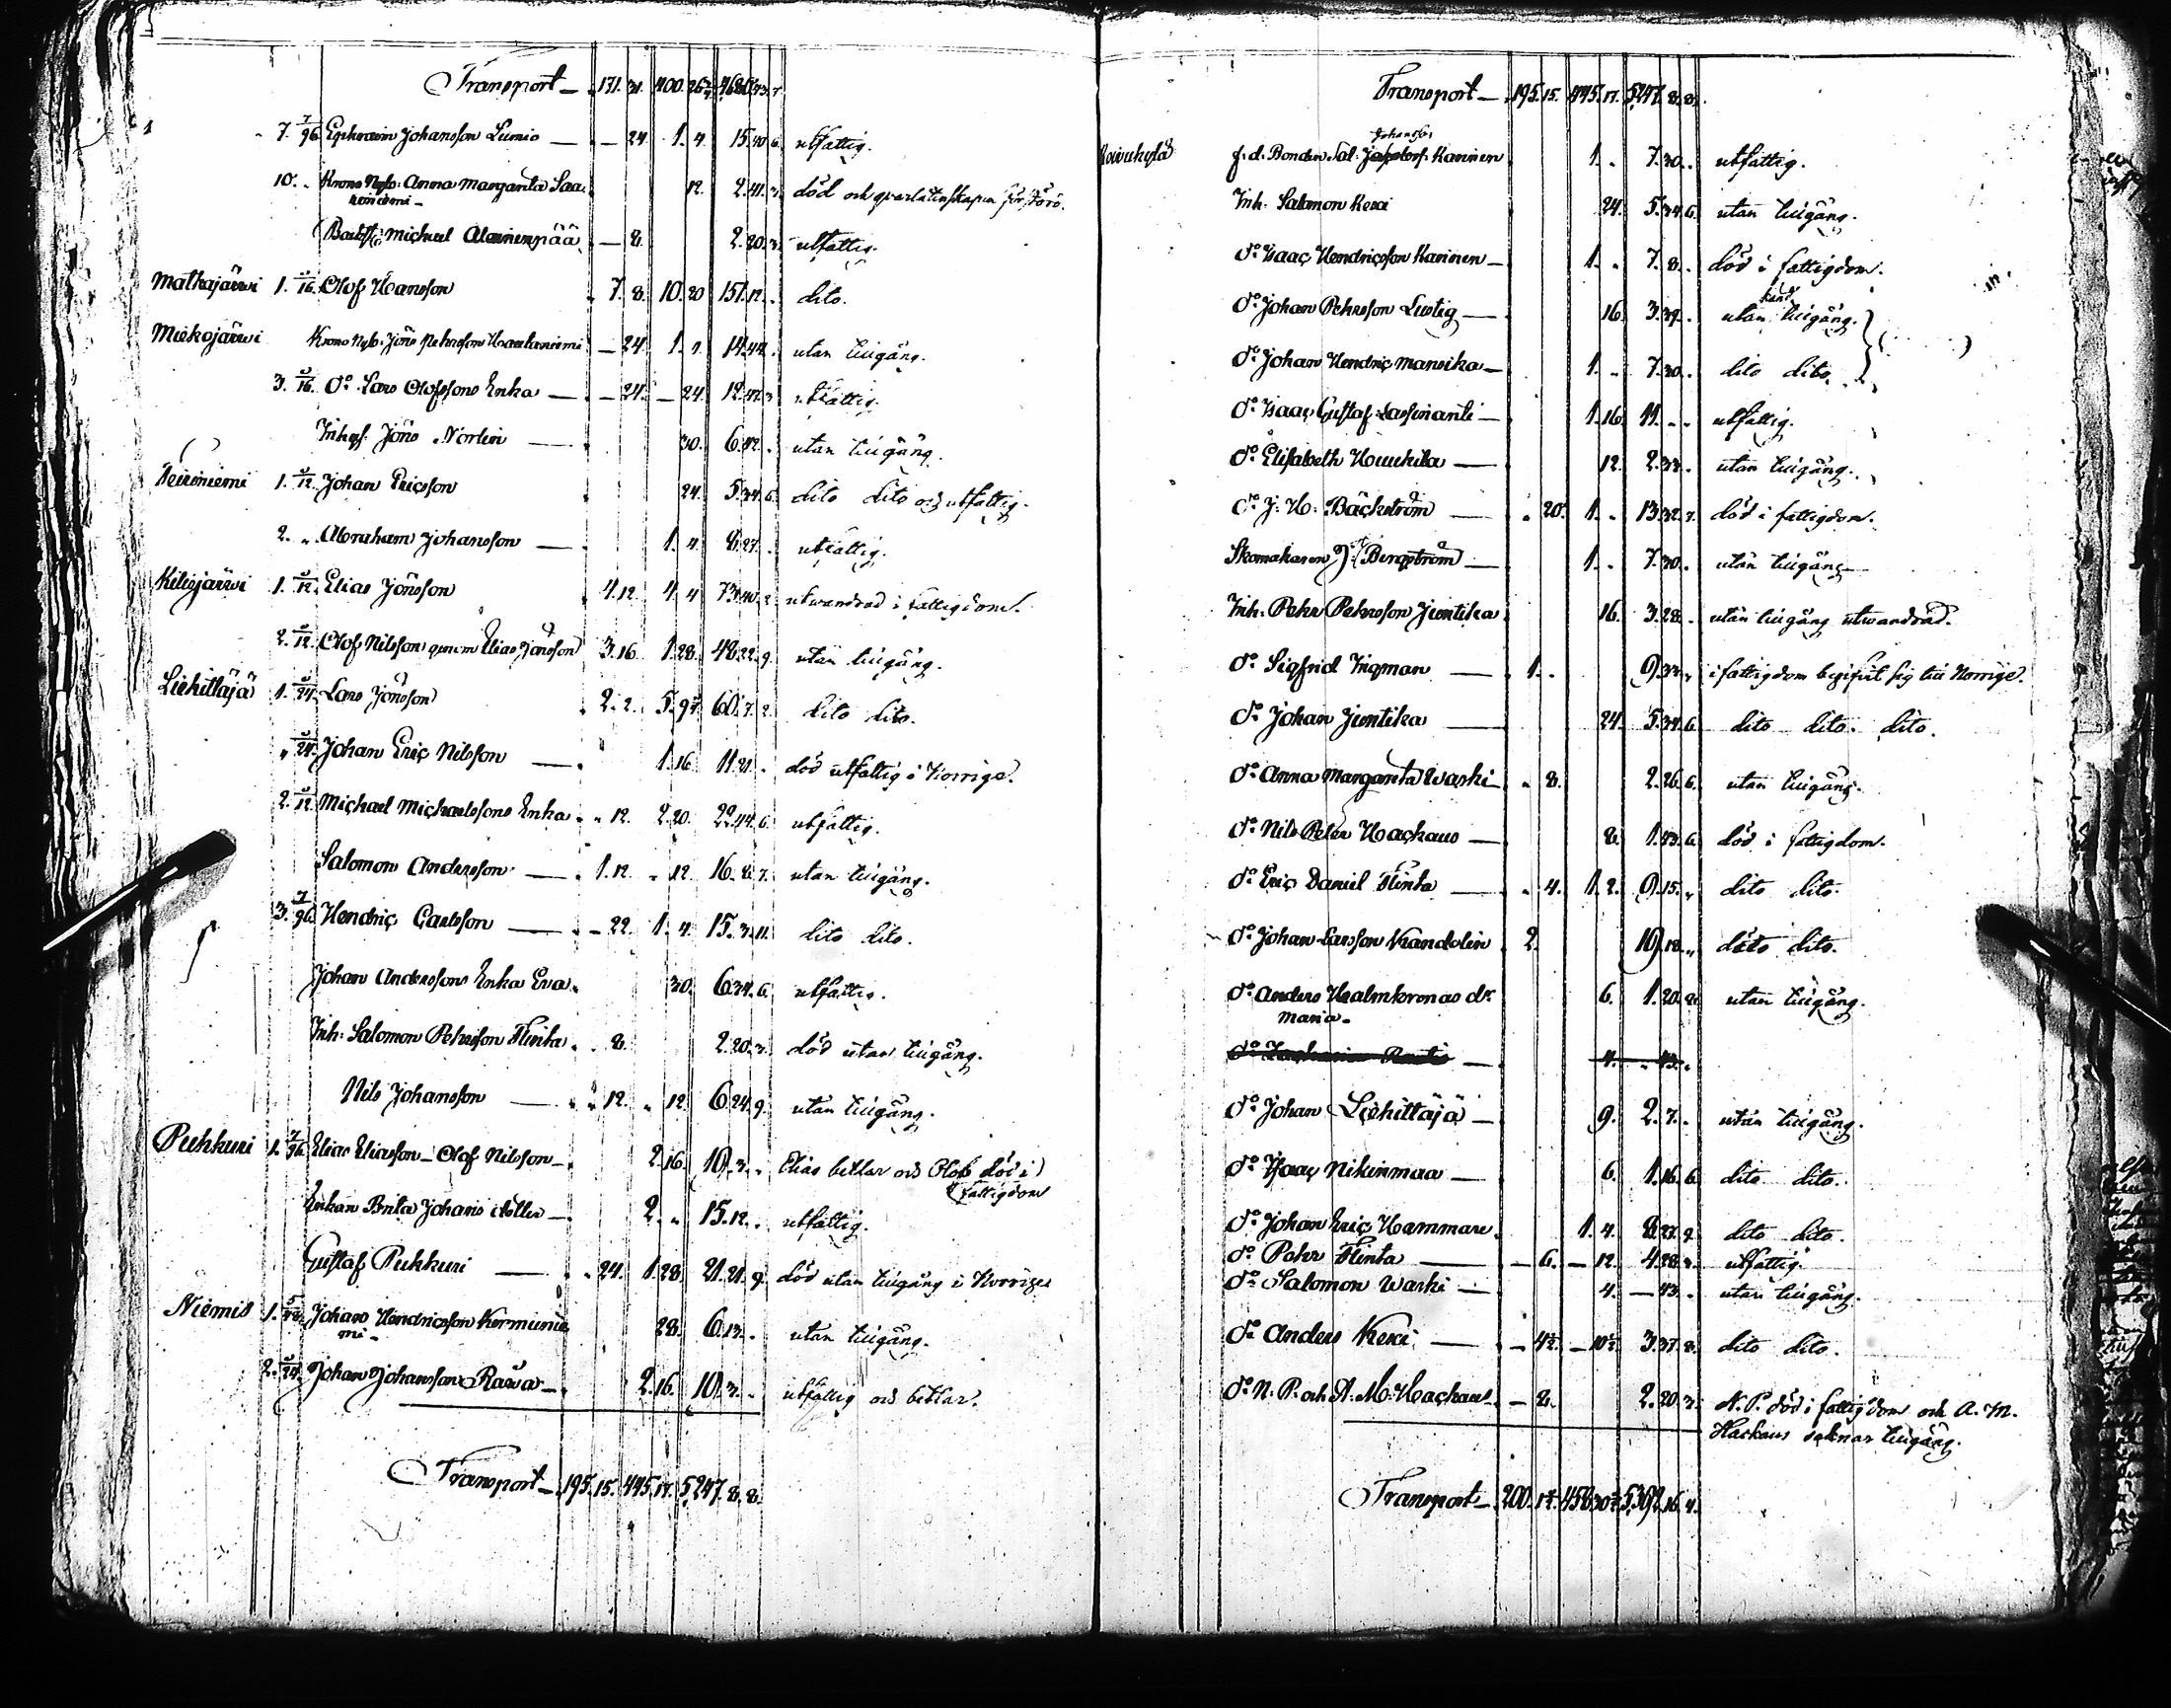 Transport – 171. 31. 400. 26
7. 7/96 Ephraim Johansson Lumio — – 24. 1. 4. 15. 40. 6. utfattig.
10. „ Krono Nyb: Anna Margareta Saa 12. 2. 41. 3. död och qvarlåtenskapen förstörd.
niemi –
Michael Alainenpää – 8. 2. 20. 3. utfattig.
Matkajärwi 1. 5/16. Olof Hansson 7. 8. 10. 20 151. 12. . dito.
Miekojärwi Krono Nyb. Jöns Pehrsson – 24. 1. 14. 44. utan tillgång.
3. 5/16. Do Lars Olofssons Enka — – 24. – 24. 12. utfattig.
Inhys. Jöns Norlin — 30. 6. 12. . utan tillgång.
1. 5/12. Johan Ericsson 24. 5. 34. 6. dito dito och utfattig.
2. „ Abraham Johansson — 1. 4. 8. 27. . utfattig.
1. 5/12. Elias Jönsson 4. 12. 4. 4 73. 40. 2. utwandrad i fattigdom.
2. 5/12. Olof Nilsson genom Elias Jönsson 3. 16. 1. 28. 48. 22. 9. utan tillgång.
Liehittäjä 1. 5/24. Lars Jönsson 2. 2. 5. 60. 7. 2. dito dito.
„ 5/24. Johan Eric Nilsson — 1. 16 11. 21. . död utfattig i Norrige.
2. 5/12. Michael Michaelssons Enka „ 12. 2. 20. 22. 44. 6. utfattig.
Salomon Andersson — 1. 12. „ 12. 16. 8. 7. utan tillgång.
3. 7/96. Hendric Carlsson — – 22. 1. 4. 15. 3. 11. dito dito.
Johan Anderssons Enka Eva 30. 6. 34. 6. utfattig.
Inh: Salomon Pehrsson Flinka . 8. 2. 20. 3. död utan tillgång.
Nils Johansson — „ 12. „ 12. 6. 24. 9. utan tillgång.
Puhkuri 1. 7/96. Elias Eliasson – Olof Nilsson – 2. 16. 19. 3. . Elias betlar och Olof död i
fattigdom
Enkan Brita Johans — 2. „ 15. 12. . utfattig.
Gustaf Puhkuri — „ 24. 1. 28. 21. 21. 9. död utan tillgång i Norrige
Niemis 1. Johan Hendricsson Kermunie 28. 6. 13. . utan tillgång.
mi –
2. 5/24. Johan Johansson Rawa – 2. 16. 19. 3. . utfattig och betlar.
Transport – 195. 15. 445. 17. 5,247. 8. 8.
Transport – 195. 15. 445. 17. 5,247. 8. 8.
Johanss:
f. d. Bonden Sal: Kaninen 1. . 7. 30. . utfattig.
Inh. Salomon Kexi 24. 5. 34. 6. utan tillgång.
Do Isaac Hendricsson Kaninen – 1. . 7. 8. . död i fattigdom.
känd
Do Johan Pehrsson Lustig — 16. 3. utan tillgång.
Do Johan Hendric Mansika – 1. . 7. 30. . dito dito.
Do Isaac Gustaf Lassinanti – 1. 16. 11. . . utfattig.
Do Elisabeth — 12. 2. 33. . utan tillgång.
Do J. H. Bäckström — „ 20. 1. . 13. 32. 7. död i fattigdom.
Skomakaren Bergström — 1. . 7. 30. . utan tillgång –
Inh. Pehr Pehrsson Juntika 16. 3. 28. . utan tillgång utwandrad.
Do Sigfrid Ingman — 1. . 9. 33. „ i fattigdom begifvit sig till Norrige.
Do Johan Juntika — 24. 5. 34. 6. dito dito. dito.
Do Anna Margareta Waski – „ 8. 2. 26. 6. utan tillgång.
Do Nils Peter Hackaus — 8. 1. 43. 6. död i fattigdom.
Do Eric Daniel Flinka — „ 4. 1. 2. 9. 15. „ dito dito.
Do Johan Larsson Kandelin 2. 19. 18. „ dito dito.
Do Anders Malmkronas dr 6. 1. 20. utan tillgång.
Maria –
Do — 4. „ 43. .
Do Johan Liehittäjä – 9. 2. 7. . utan tillgång.
Do Isaac Nikinmaa — 6. 1. 16. 6. dito dito.
Do Johan Eric Hammare. 1. 4. 8. 27. 9. dito dito.
Do Pehr Flinka — – 6. – 12. 4. 28. utfattig.
Do Salomon Waski — 4. – 43. . utan tillgång.
Do Anders Kexi. — – 4½. – 10½. 3. 37. 8. dito dito.
Do N. P. och A. M. Hackaus – – 8. 2. 20. 3. N. P. död i fattigdom och A. M.
Hackaus saknar tillgång.
Transport – 200. 458. 5,392. 16. 4.